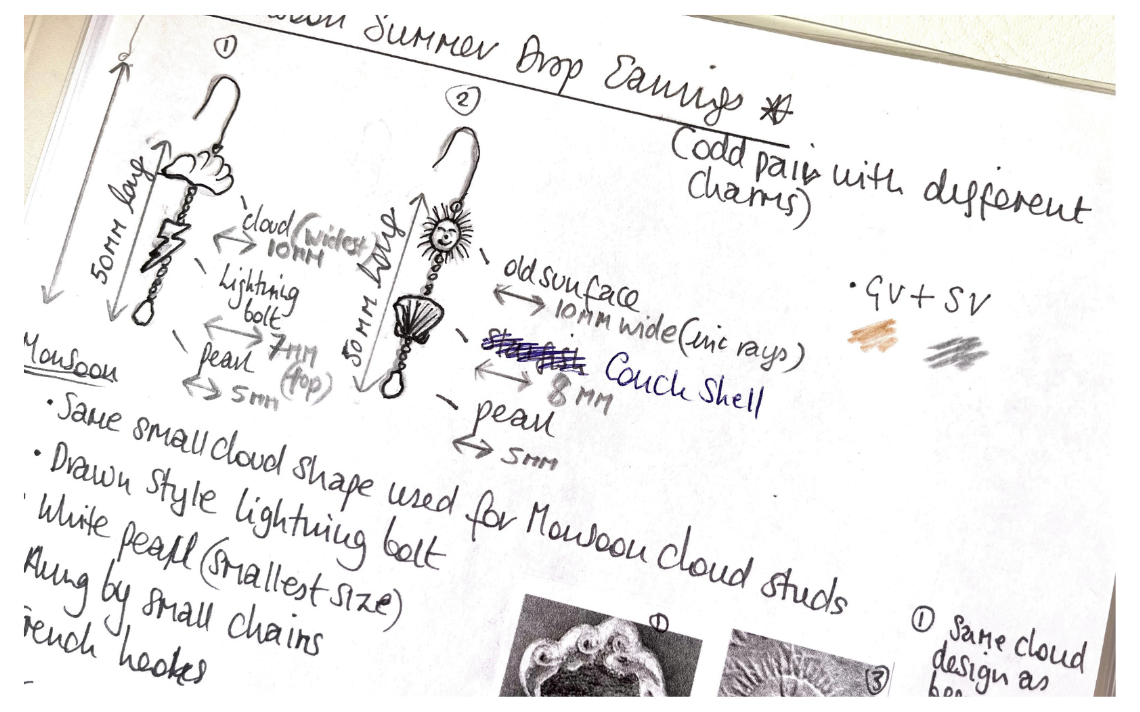 Summer Drop Earrings
(odd pair with different
charms)
①
②
50MM long
50MM long
cloud (widest)
10MM
Lightning
bolt
7MM
(top)
pearl
5MM
old sun face
10MM wide (inc rays)
Couch Shell
8MM
pearl
5MM
• GV + SV
Monsoon
• Same small cloud shape used for Monsoon cloud studs
• Drawn style lightning bolt
White pearl (smallest size)
Hung by small chains
french hooks
①
③
① Same cloud
design as